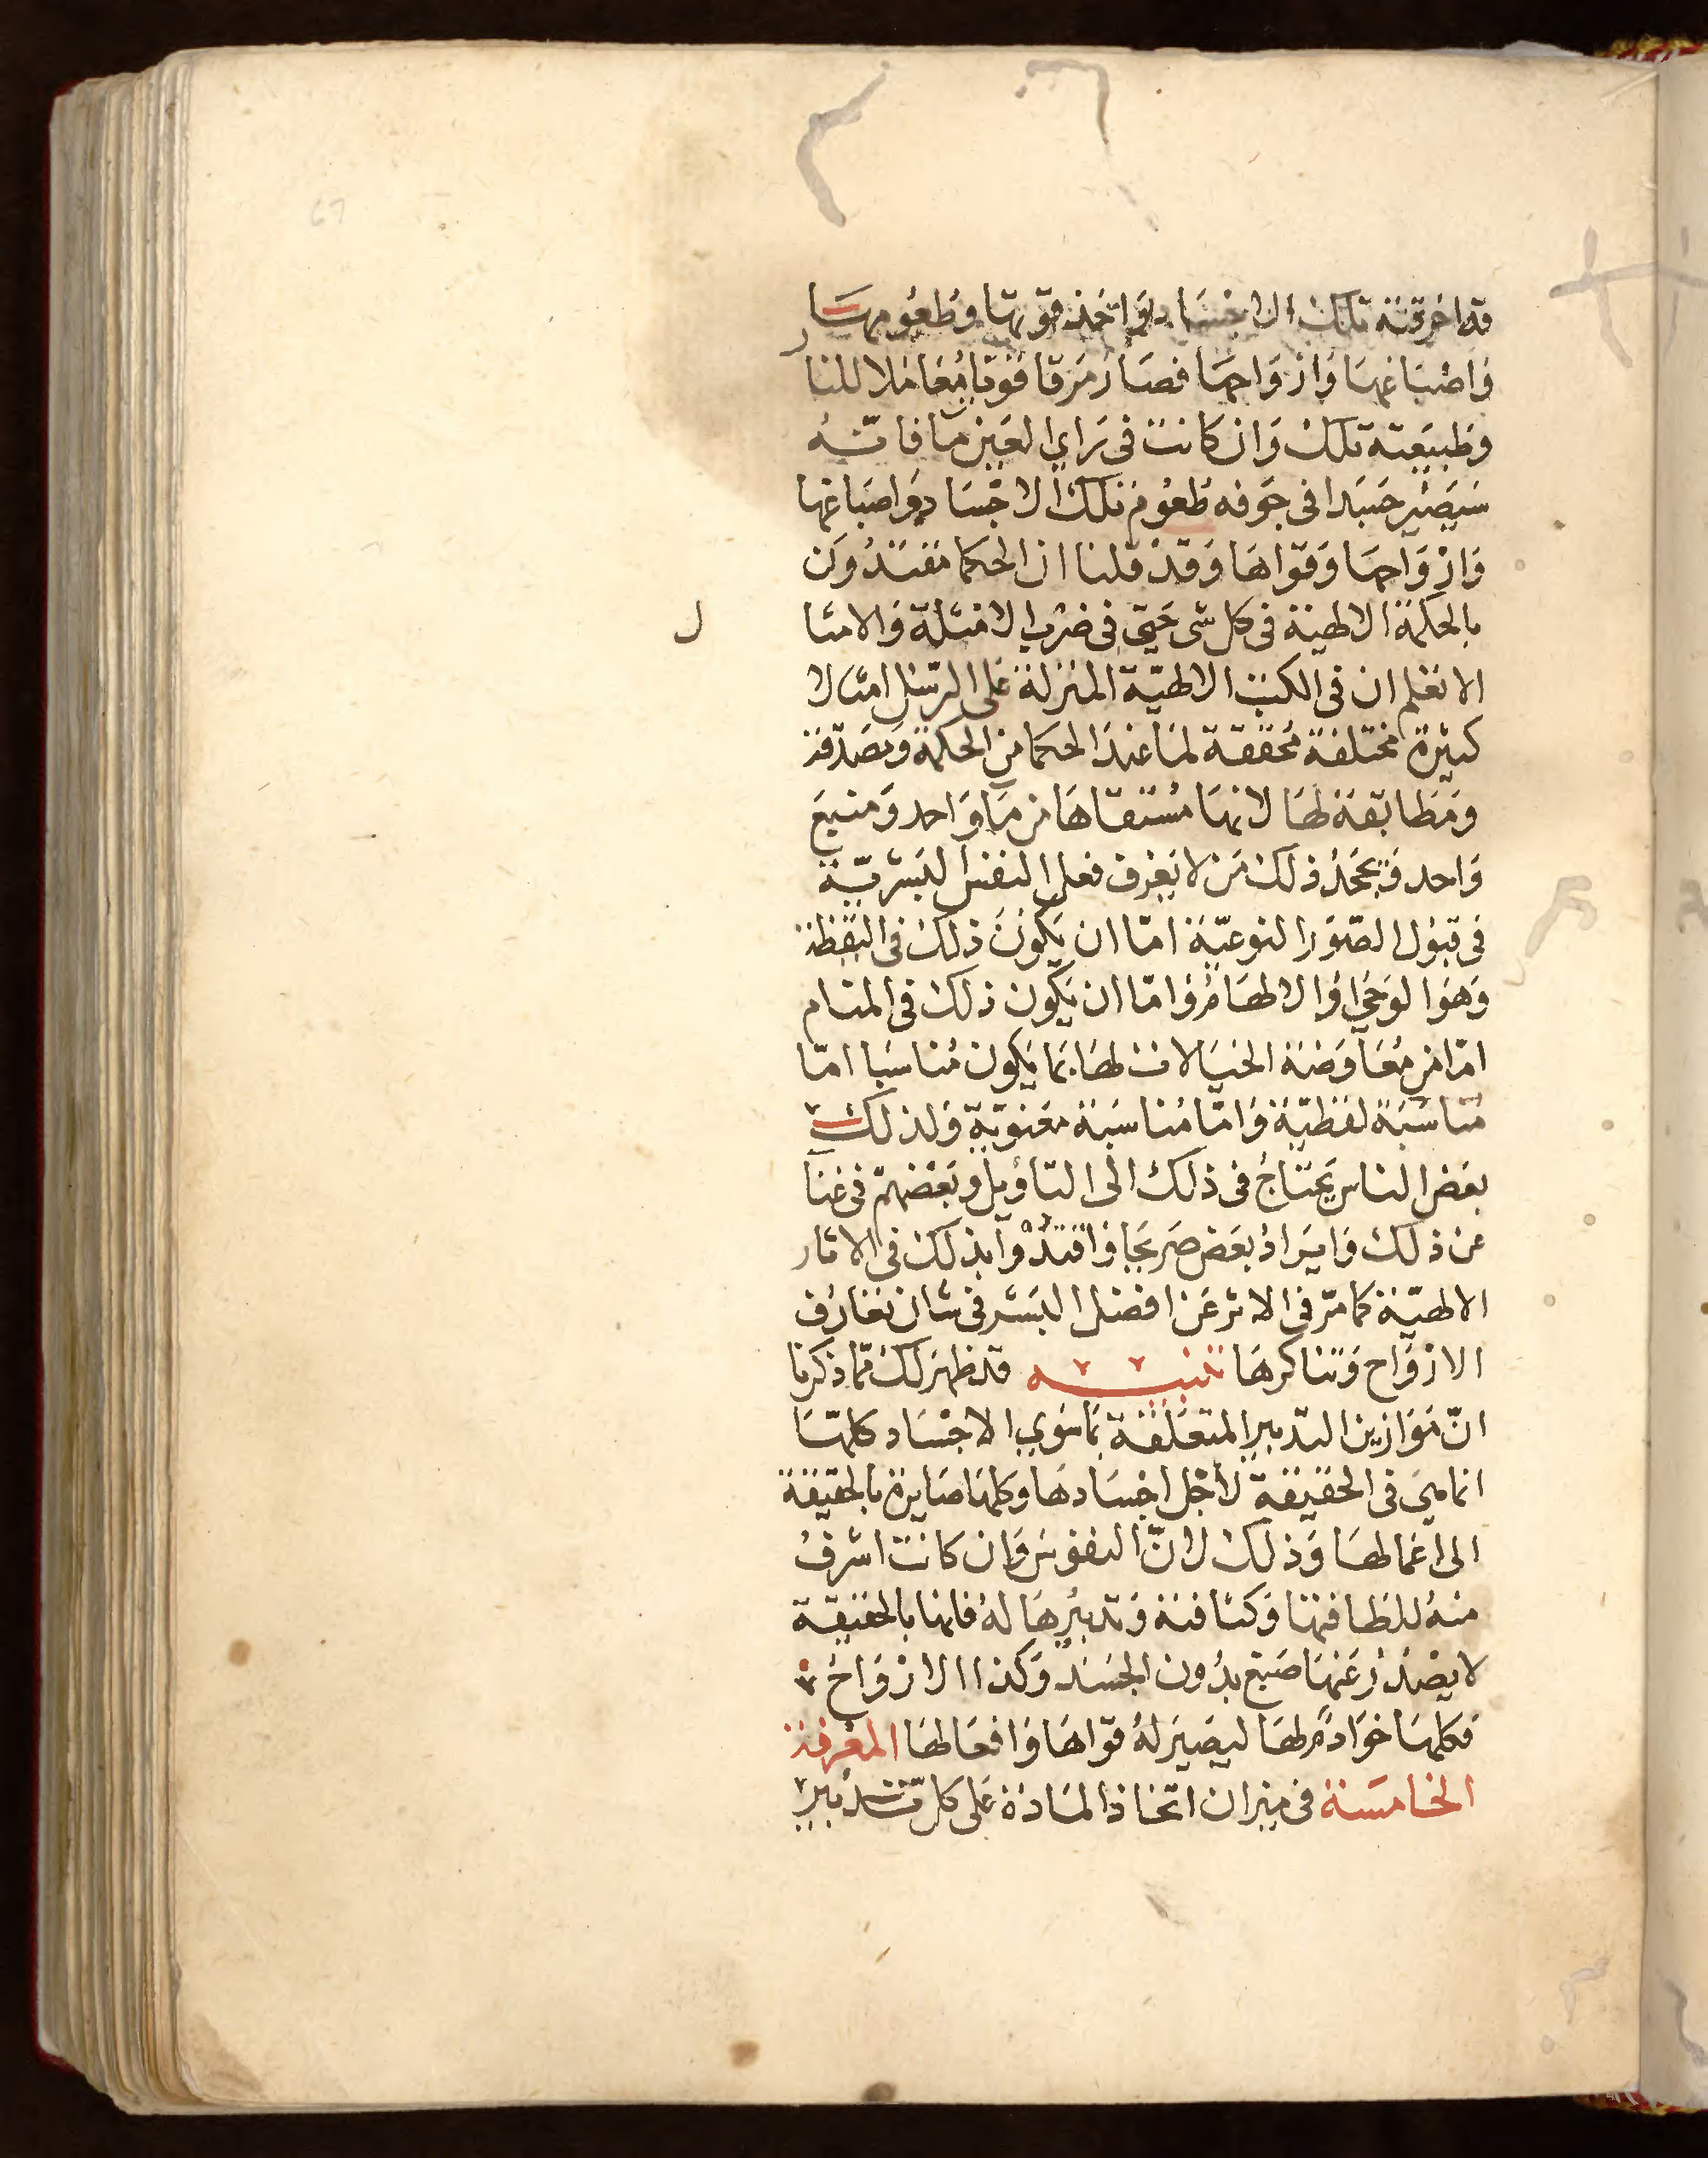 قد احرقته تلك الاجساد واخذ قوتها وطعومها
واصباغها وازواجها فصار مرقا قويا مقاملا للنار
وطبيعته تلك وان كانت في راي العين ما فانه
سيصير جسدا في جوفه طعوم تلك الاجساد واصباغها
وازواجها وقواها وقد قلنا ان الحكما مقتدون
بالحكمة الالهية في كل شي حتي في ضرب الامثلة والامثال
الا تعلم ان في الكتب الالهية المنزلة على الرسل امثالا
كثيرة مختلفة محققة لما عند الحكما من الحكمة ومصدقة
ومطابقة لها لانها مستقاها من ما واحد ومنبع
واحد ويجحد ذلك من لا يعرف فعل النفس البشرية
في قبول الصور النوعية اما ان يكون ذلك في اليقظة
وهو الوحي او الالهام واما ان يكون ذلك في المنام
اما من معاوضة الخيالات لها بما يكون مناسبا اما
مناسبة لفظية واما مناسبة معنوية ولذلك
بعض الناس يحتاج في ذلك الى التاويل وبعضهم في غنا
عن ذلك وايراد بعض صريحا واقتدوا بذلك في الاثار
الالهية كما مر في الاثر عن افضل البشر في شان تعارف
الارواح وتناكرها تنبيه قد ظهر لك مما ذكرنا
ان موازين التدبير المتعلقة بما سوي الاجساد كلها
انما هي في الحقيقة لاجل اجسادها وكلها صايرة بالحقيقة
الى اعمالها وذلك لان النفوس وان كانت اشرف
منه للطافتها وكثافته وتدبيرها له فانها بالحقيقة
لا يصدر عنها صبغ بدون الجسد وكذا الارواح
فكلها خوادم لها ليصير له قواها وافعالها المعرفة
الخامسة في ميزان اتخاذ المادة على كل تدبير